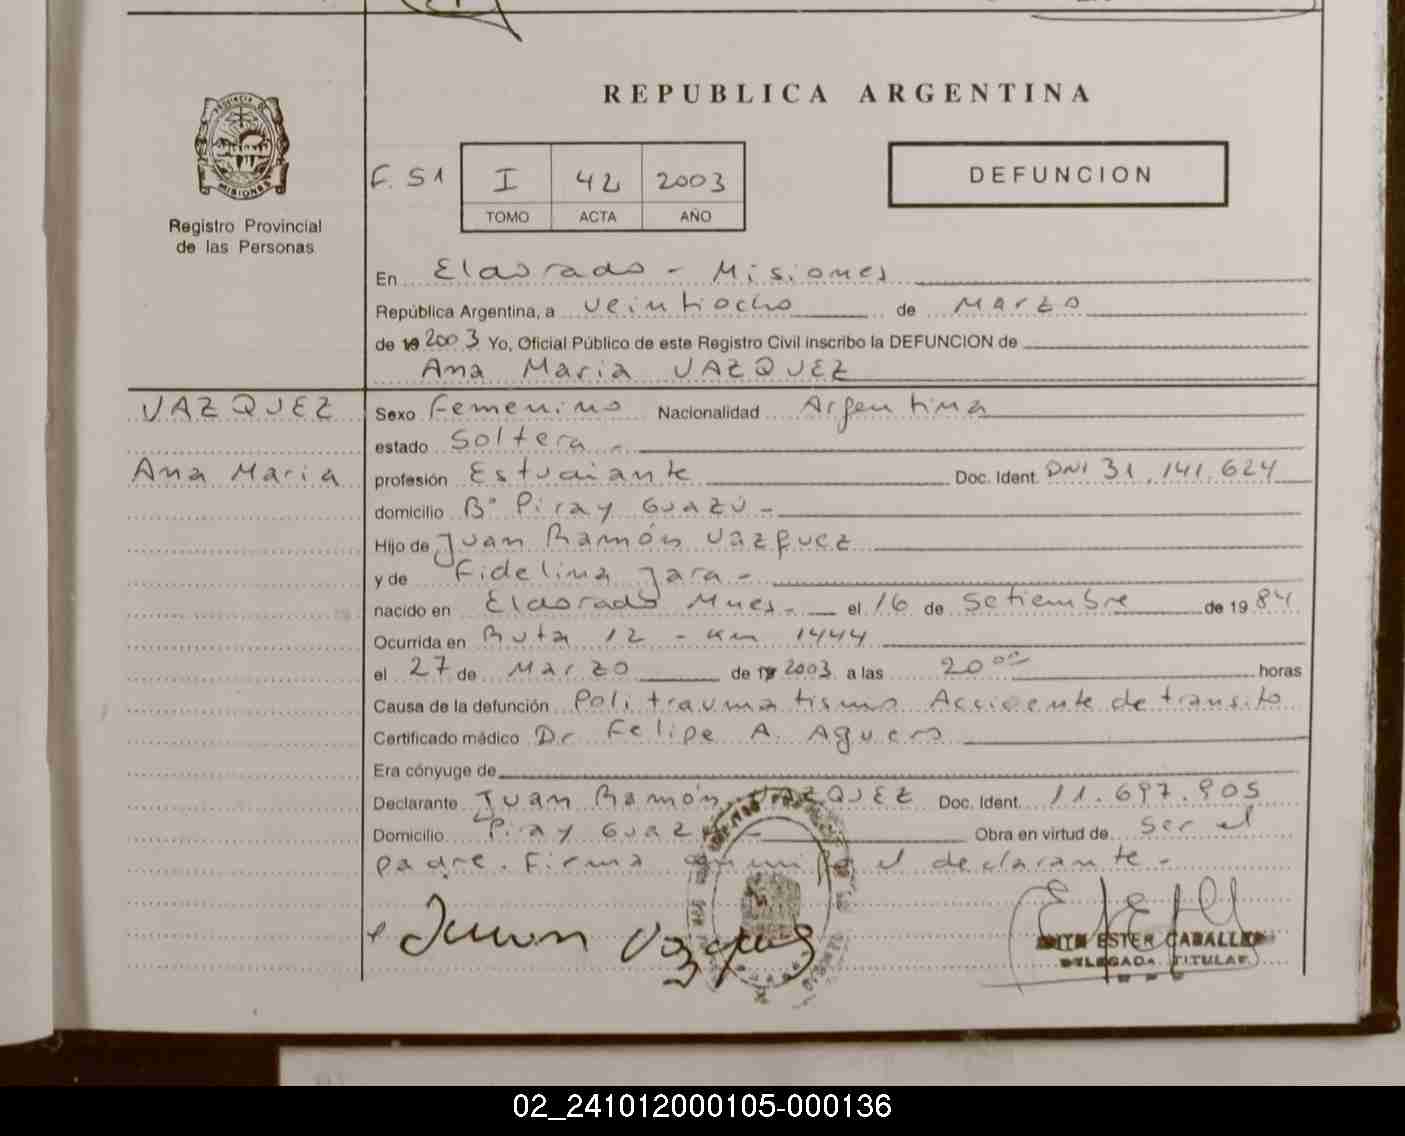 REPUBLICA ARGENTINA
PROVINCIA D MISIONES
Registro Provincial
de las Personas
F. 51 I 42 2003
TOMO ACTA AÑO
DEFUNCION
En Eldorado - Misiones
República Argentina, a veintiocho de Marzo
de 19 2003 Yo, Oficial Público de este Registro Civil inscribo la DEFUNCION de
Ana Maria VAZQUEZ
VAZQUEZ
Ana Maria
Sexo Femenino Nacionalidad Argentina
estado Soltera -
profesión Estudiante Doc. Ident. DNI 31.141.624
domicilio Bº Piray Guazú -
Hijo de Juan Ramón Vazquez
y de Fidelina Jara -
nacido en Eldorado Mnes. el 16 de Setiembre de 19 84
Ocurrida en Ruta 12 - Km 1444
el 27 de Marzo de 19 2003 a las 20 00 horas
Causa de la defunción Politraumatismo Accidente de transito
Certificado médico Dr Felipe A. Aguero
Era cónyuge de
Declarante Juan Ramón VAZQUEZ Doc. Ident. 11.697.905
Domicilio Piray Guaz - Obra en virtud de Ser el
padre. Firma el declarante -
Juan Vazquez
ESTER CABALLE
DELEGADA TITULAR
02_241012000105-000136